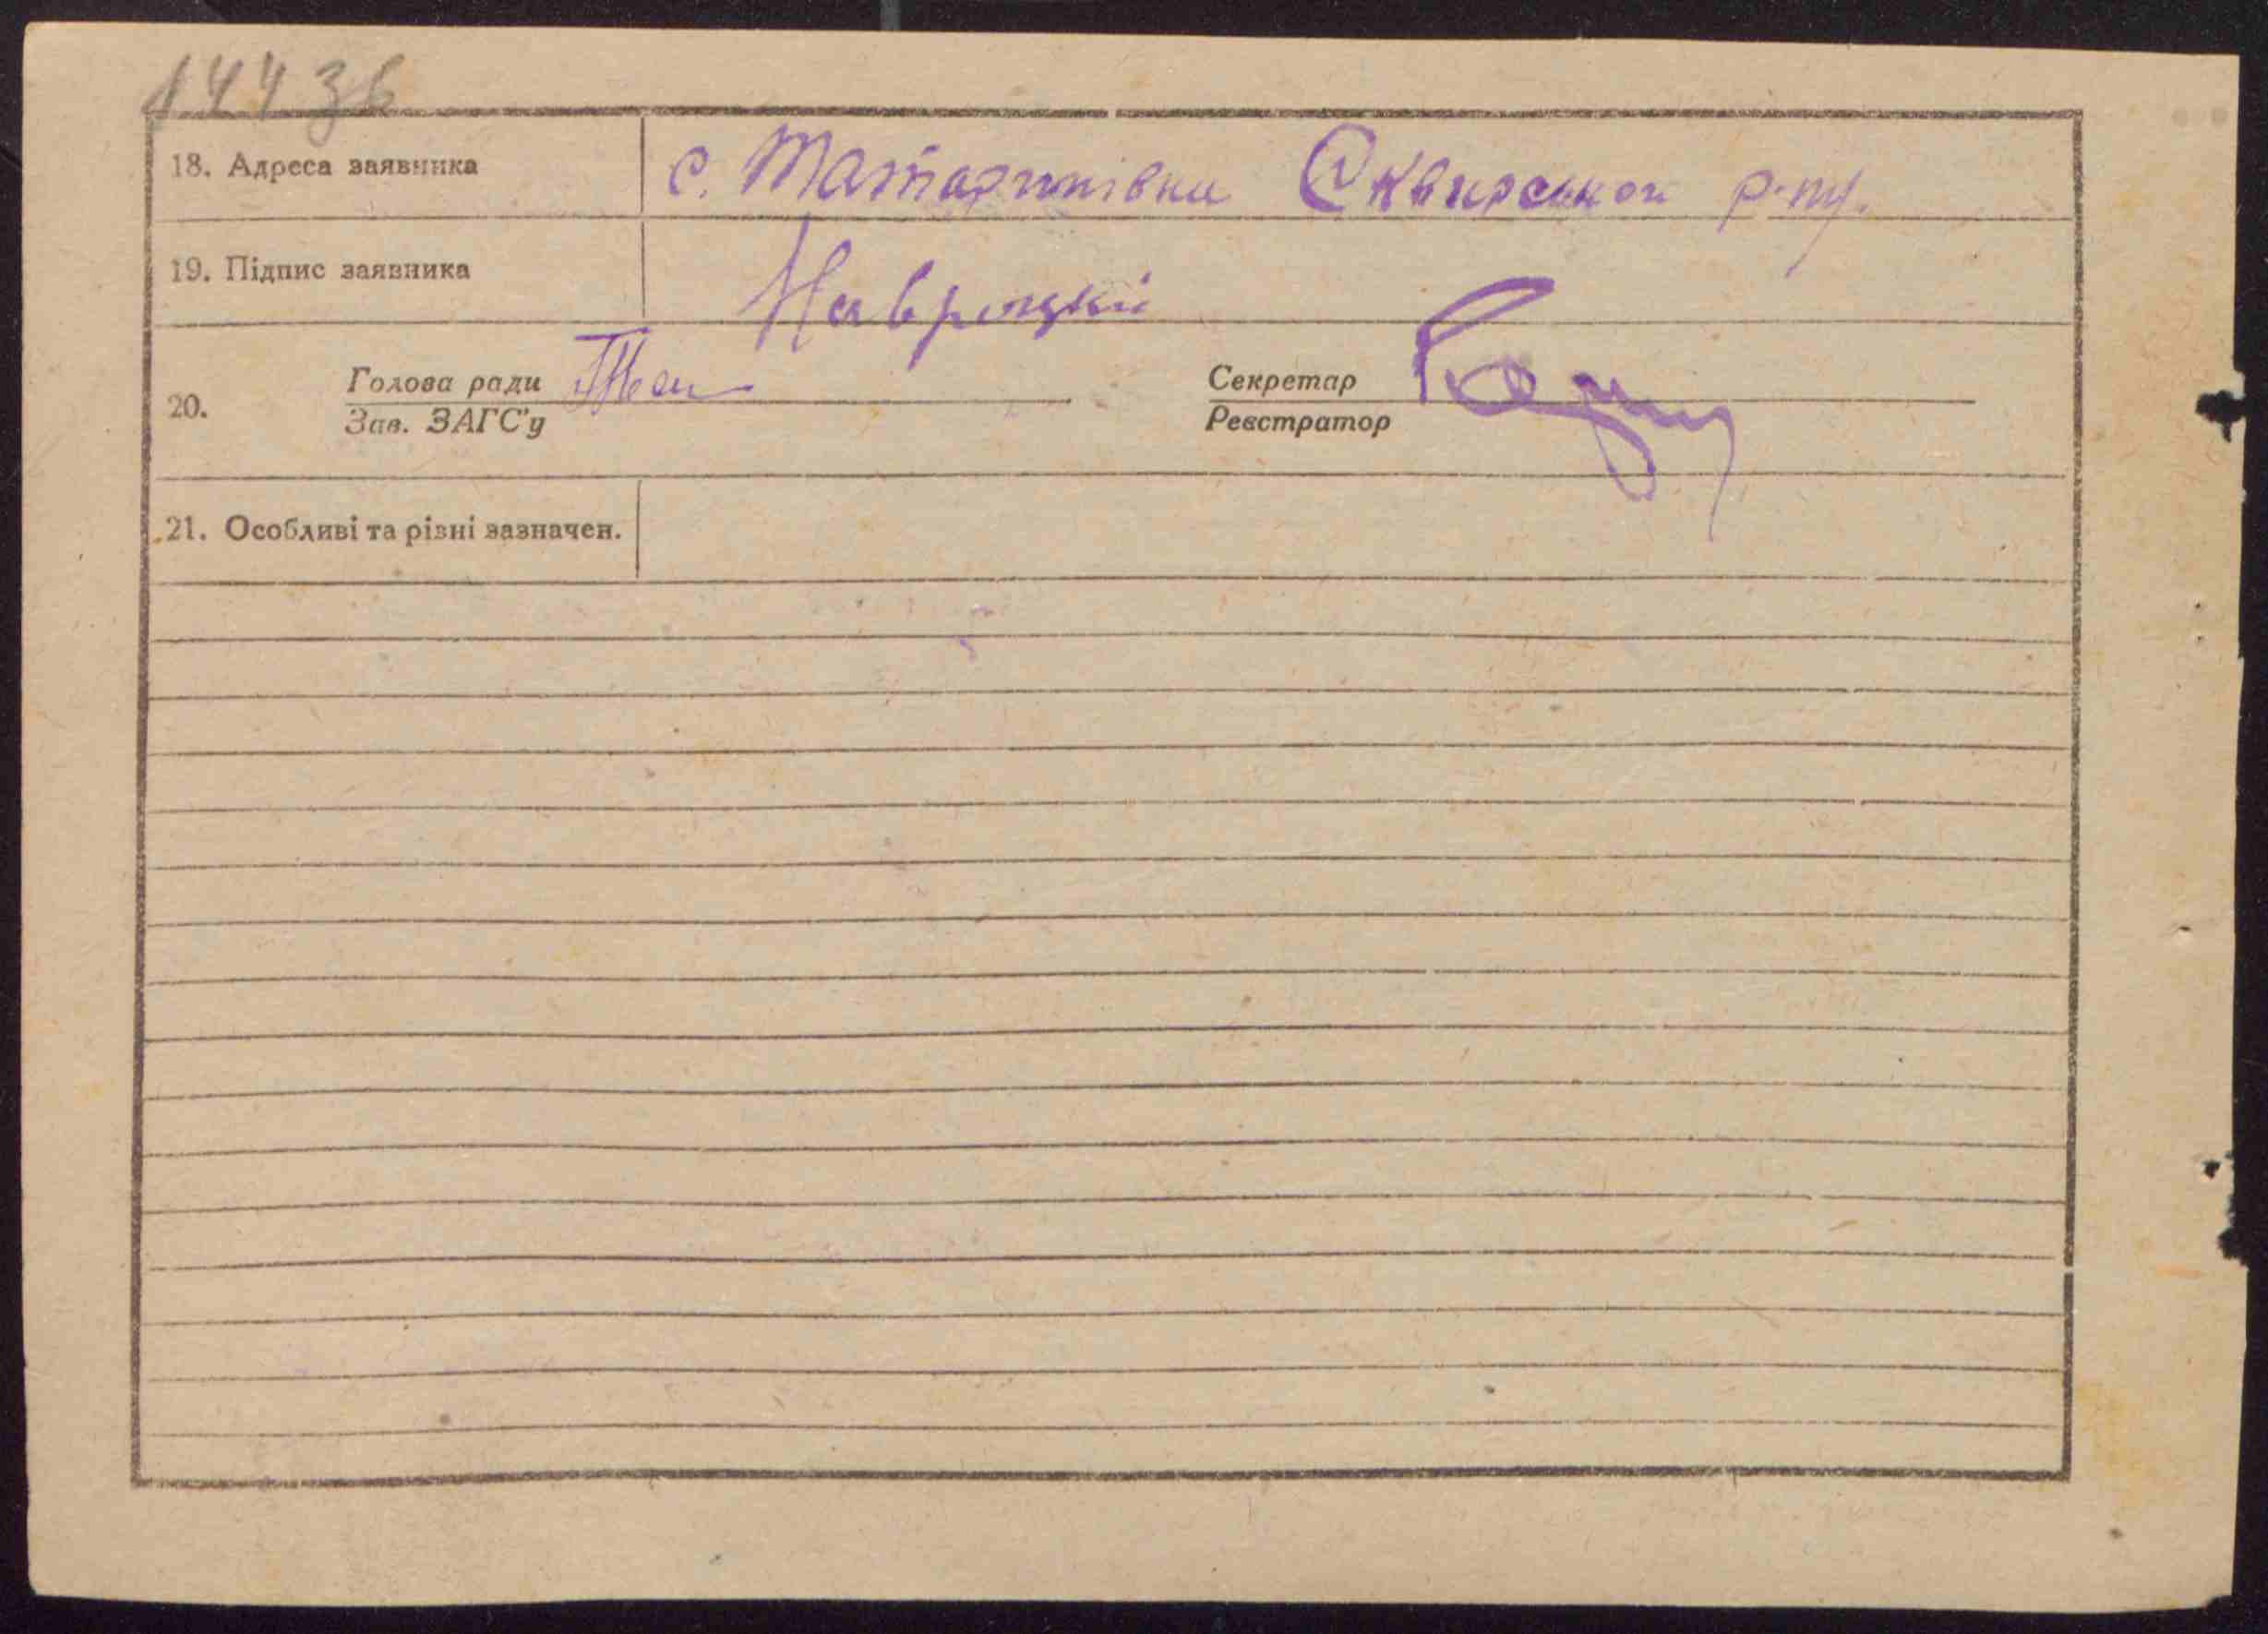 14436
18. Адреса заявника с. Татаринівка Сквирського р-ну.
19. Підпис заявника Навроцкий
20. Голова ради Секретар
Зав. ЗАГС'у Реєстратор
21. Особливі та різні зазначен.